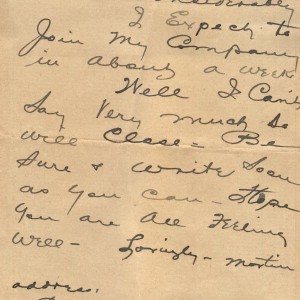 I Expect to
Join My Company
in About a week
Well I Can't
Say Very much so
will Close - Be
Sure & write Soon
as you can - Hope
you are All Feeling
well - Lovingly - Martin
address: